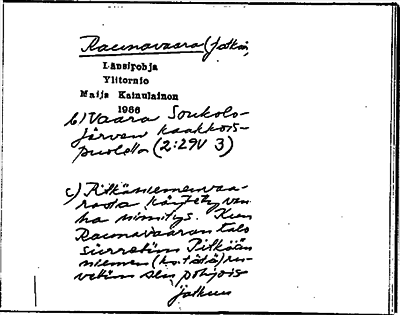 Raunavaara (jatkui,
Länsipohja
Ylitornio
Maija Kainulainen
1986
b) Vaara Soukolo-
järven kaakkois-
puolella (2:29V 3)
c) Pitkäniemenvaa-
rasta käytetty van-
ha nimitys. Kun
Raunavaaran talo
siirrettiin Pitkään
niemeen (ks. tätä) ru-
vettiin sen pohjois-
jatkuu